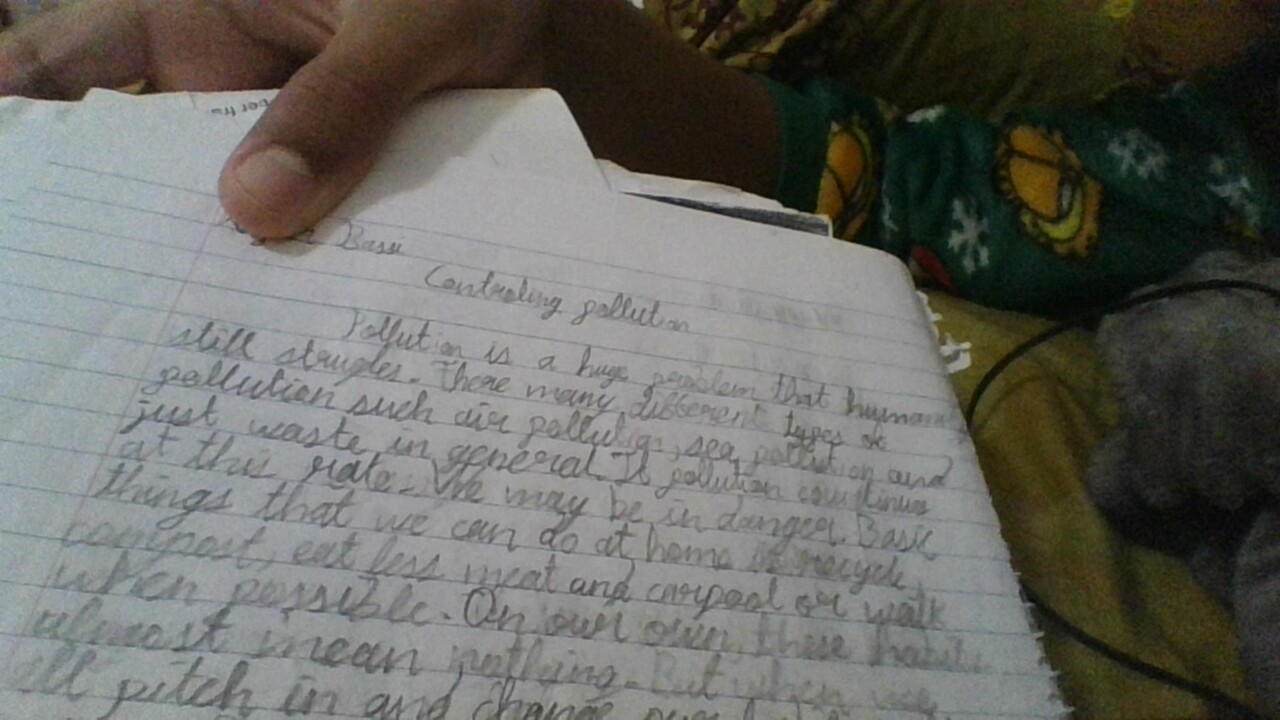 Bassi
Controling pollution
Pollution is a huge problem that humans
still strugles. There many different types of
pollution such air pollution, sea pollution and
just waste in general. If pollution countinus
at this rate. We may be in danger. Basic
things that we can do at home is recycle,
compost, eat less meat and carpool or walk
when possible. On our own, these habits
almost mean nothing. But when we
all pitch in and change our